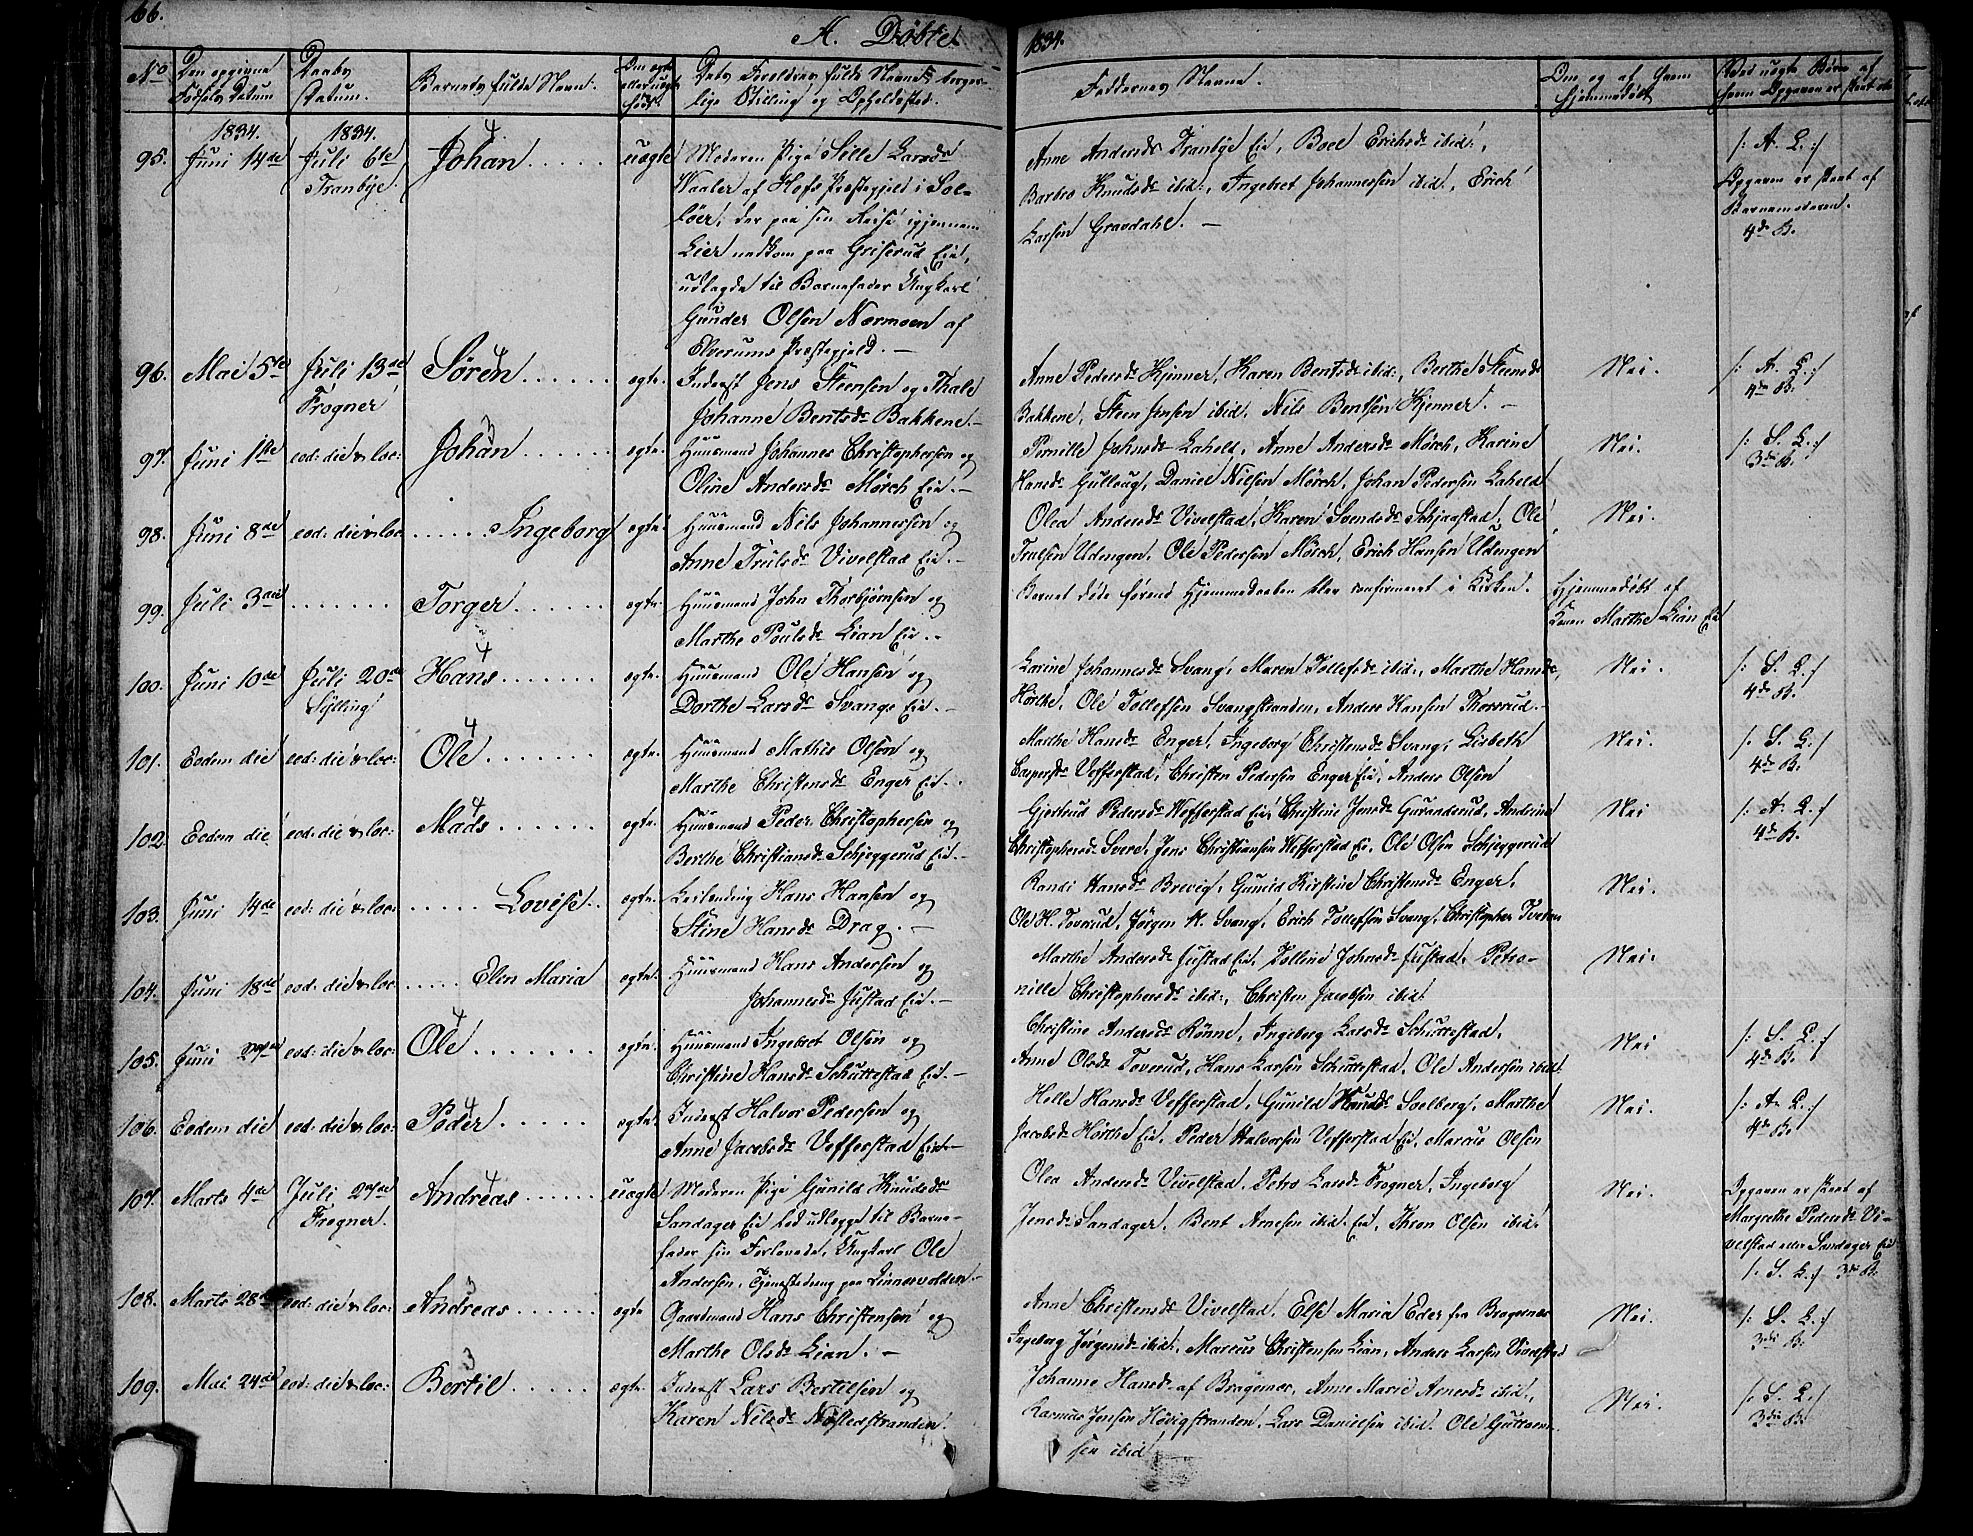 66.
A. Døbte
1834.
No
Den opgivne Fødsels Datum
Daabs Datum.
Barnets fulde Navn.
Om ægte eller uægte født.
Dets Foreldres fulde Navne, borger-
lige Stilling og Opholdssted.
Faddernes Navne.
Om og af hvem hjemmedøbt
Ved uægte Børn af hvem Opgaven er skeet
95. 1834. Juni 14de
1834. Juli 6te Tranbye.
4 Johan
uægte
Moderen Pige Sille Larsdr
Waaler af Hofs Præstegjeld i Sol-
löer, der paa sin Reise igjennem
Lier nedkom paa Griserud Eie,
udlagde til Barnefader Ungkarl
Gunder Olsen Nermoen af
Elverums Præstegjeld. —
Anne Andersdr Tranbye Eie, Boel Erichsdr ibid:,
Barbro Knudsdr ibid:, Ingebret Johannessen ibid:, Erich
Larsen Gravdahl. —
/: A. L. :/
Opgaven er skeet af
Barnemoderen.
4de B.
96. Mai 5te
Juli 13de Frogner
4 Søren
ægte.
Inderst Jens Steensen og Thale
Johanne Bentsdr Bakkene. —
Anne Pedersdr Hjenner, Karen Bentsdr ibid:, Berthe Steensdr
Bakkene, Steen Jensen ibid, Nils Bentsen Hjenner. —
Nei.
/: A. L. :/
4de B.
97. Juni 1ste
eod: die & loc:
3 Johan
ægte.
Huusmand Johannes Christophersen og
Oline Andersdr Mörch Eie. —
Pernille Johnsdr Laheld, Anne Andersdr Mörch, Karine
Hansdr Gulloug, Daniel Nilsen Mörch, Johan Pedersen Laheld
Nei.
/: S. L. :/
3die B.
98. Juni 8de
eod: die & loc:
Ingeborg
ægte
Huusmand Nils Johannessen og
Anne Trulsdr Vivelstad Eie. —
Olea Andersdr Vivelstad, Karen Svendsdr Schjæstad, Ole
Trulsen Udengen, Ole Pedersen Mörch, Erich Hansen Udengen
Nei.
99. Juli 3die
Torger
ægte.
Huusmand John Thorbjörnsen og
Marthe Poulsdr Lian Eie. —
Barnet døde førend Hjemmedaaben blev confirmeret i Kirken.
Hjemmedøbt af
Konen Marthe Lian Eie
100. Juni 10de
Juli 20de Sylling
4 Hans
ægte.
Huusmand Ole Hansen og
Dorthe Larsdr Svange Eie. —
Karine Johannesdr Svang, Maren Tollefsdr ibid:, Marthe Hansdr
Hörthe, Ole Tollefsen Svangstranden, Anders Hansen Thorsrud. —
Nei.
/: S. L. :/
4de B.
101. Eodem die
eod: die & loc:
4 Ole
ægte.
Huusmand Mathis Olsen og
Marthe Christensdr Enger Eie. .
Marthe Hansdr Enger, Ingeborg Christensdr Svang, Lisbeth
Caspersdr Vefferstad, Christen Pedersen Enger Eie, Anders Olsen
Nei.
/: S. L. :/
4de B.
102. Eodem die
eod: die & loc:
4 Mads
ægte.
Huusmand Peder Christophersen og
Berthe Christiansdr Schjeggerud Eie. —
Gjertrud Pedersdr Vefferstad Eie, Christine Jensdr Guranderud, Andrine
Christophersdr Svere, Jens Christiansen Vefferstad Eie, Ole Olsen Schjeggerud
Nei
/: A. L. :/
4de B.
103. Juni 14de
eod: die & loc:
Lovise.
ægte.
Leilending Hans Hansen og
Stine Hansdr Drag. —
Randi Hansdr Brevig, Gunild Kirstine Christensdr Enger,
Ole H. Toverud, Jörgen N. Svang, Erich Tollefsen Svang, Christopher Tveten
Nei.
104. Juni 18de
eod: die & loc:
Elen Maria
ægte.
Huusmand Hans Andersen og
Johannesdr Justad Eie. —
Marthe Andersdr Justad Eie, Tolline Johnsdr Justad, Petro-
nille Christophersdr ibid:, Christen Jacobsen ibid
Nei.
105. Juni 27de
eod: die & loc:
4 Ole
ægte.
Huusmand Ingebret Olsen og
Christine Hansdr Schuttestad Eie. —
Christine Andersdr Rönne, Ingeborg Larsdr Schuttestad,
Anne Olsdr Toverud, Hans Larsen Schuttestad, Ole Andersen ibid.
Nei
/: S. L. :/
4de B.
106. Eodem die
eod: die & loc:
4 Peder
ægte.
Inderst Halvor Pedersen og
Anne Jacobsdr Vefferstad Eie. —
Helle Hansdr Vefferstad, Gunild Knudsdr Solberg, Marthe
Jacobsdr Hörthe Eie, Peder Halvorsen Vefferstad Eie, Marcus Olsen
Nei.
/: A. L. :/
4de B.
107. Marts 4de
Juli 27de Frogner.
4 Andreas
uægte
Moderen Pige Gunild Knudsdr
Sandager Eie lod udlegge til Barne-
fader sin Forlovede, Ungkarl Ole
Andersen, Tjenestedreng paa Linnesvolden. —
Olea Andersdr Vivelstad, Petro Larsdr Frogner, Ingeborg
Jensdr Sandager, Bent Arnesen ibid. Eie, Thron Olsen ibid:
Nei.
Opgaven er skeet af
Margrethe Pedersdr Vi-
velstad eller Sandager Eie
/: S. L. :/ 3die B.
108. Marts 28de
eod: die & loc:
3 Andreas
ægte
Gaardmand Hans Christensen og
Marthe Olsdr Lian. —
Anne Christensdr Vivelstad, Else Maria Eder fra Bragernes
Ingeborg Jørgensdr ibid:, Marcus Christensen Lian, Anders Larsen Vivelstad
Nei.
/: S. L. :/
3die B.
109. Mai 24de
eod: die & loc:
3 Bertil
ægte.
Inderst Lars Bertilsen og
Karen Nilsdr Nöstedstranden.
Johanne Hansdr af Bragernes, Anne Marie Arnesdr ibid:,
Rasmus Jensen Hövigstranden, Lars Danielsen ibid. Ole Guttorm-
sen ibid
Nei.
/: S. L. :/
3die B.